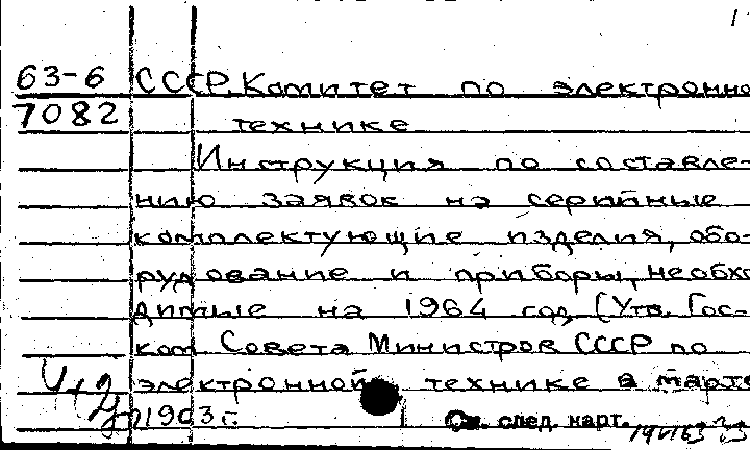 63-6 СССР. Комитет по электронно
7082
технике
Инструкция по составле-
нию заявок на серийные
комплектующие изделия, обо-
рудование и приборы, необхо
димые на 1964 год. (Утв. Гос-
ком Совета Министров СССР по
электронной технике в марте
1963 г.
См. след. карт.